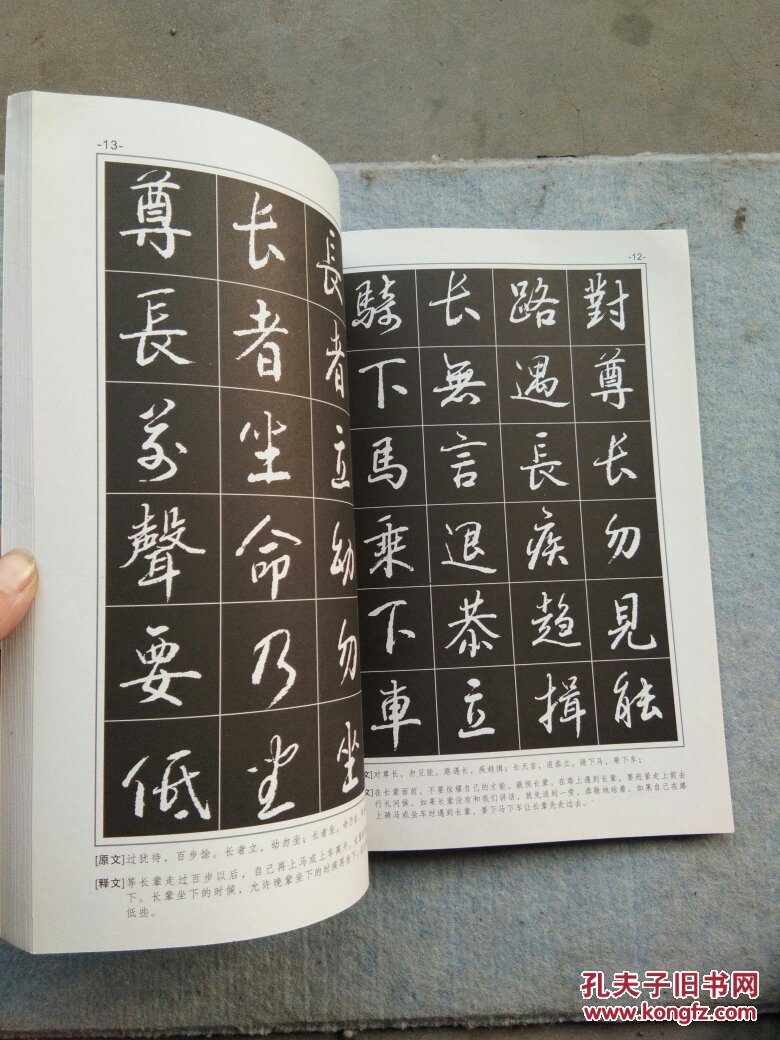 -12-
對尊长勿見能
路遇長疾趋揖
长無言退恭立
騎下馬乘下車
文]对尊长，勿见能。路遇长，疾趋揖；长无言，退恭立。骑下马，乘下车；
文]在长辈面前，不要炫耀自己的才能，藐视长辈。在路上遇到长辈，要赶紧走上前去
行礼问候。如果长辈没有和我们讲话，就先退到一旁，恭敬地站着。如果自己在路
上骑马或坐车时遇到长辈，要下马下车让长辈先走过去。
-13-
長者立幼勿坐
长者坐命乃坐
尊長前聲要低
[原文]过犹待，百步馀。长者立，幼勿坐；长者坐，命乃坐。
[释文]等长辈走过百步以后，自己再上马或上车离开。长辈
下。长辈坐下的时候，允许晚辈坐下的时候再坐下。
低些。
孔夫子旧书网
www.kongfz.com